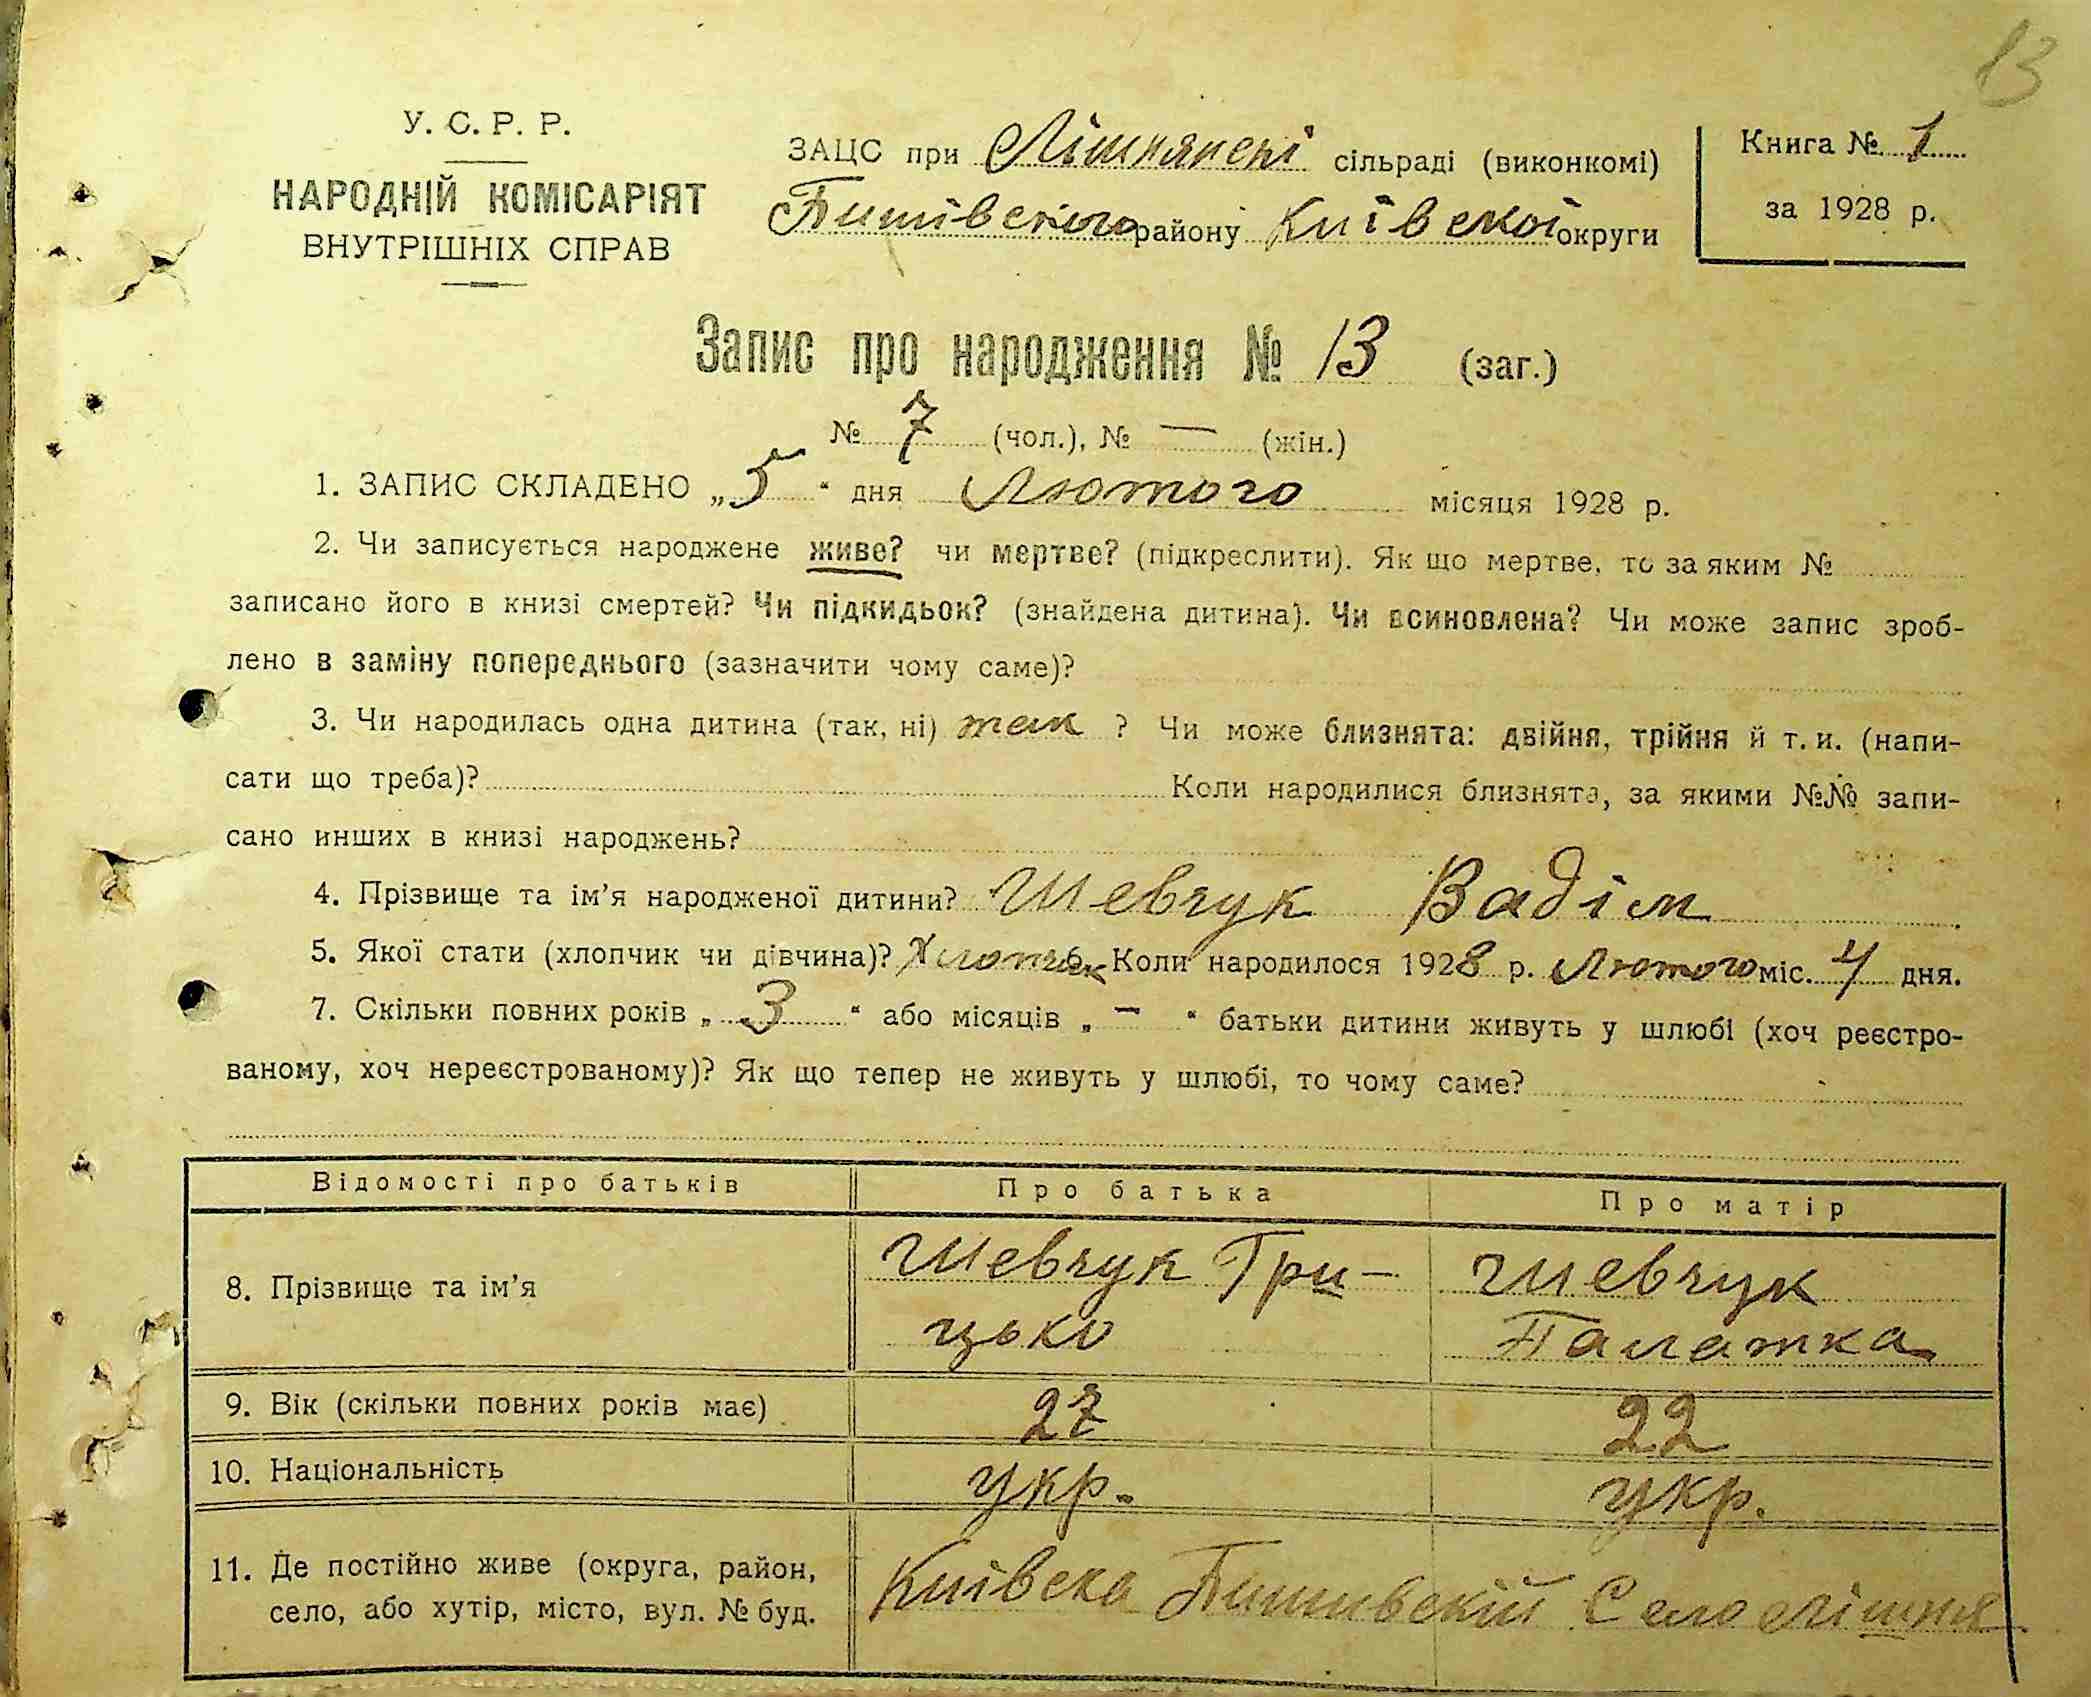 13
У. С. Р. Р.
НАРОДНІЙ КОМІСАРІЯТ
ВНУТРІШНІХ СПРАВ
ЗАЦС при Лішнянскі сільраді (виконкомі)
Бишівського району Київської округи
Книга № 1
за 1928 р.
Запис про народження № 13 (заг.)
№ 7 (чол.), № — (жін.)
1. ЗАПИС СКЛАДЕНО „ 5 “ дня Лютого місяця 1928 р.
2. Чи записується народжене живе? чи мертве? (підкреслити). Як що мертве, то за яким №
записано його в книзі смертей? Чи підкидьок? (знайдена дитина). Чи всиновлена? Чи може запис зроб-
лено в заміну попереднього (зазначити чому саме)?
3. Чи народилась одна дитина (так, ні) так ? Чи може близнята: двійня, трійня й т. и. (напи-
сати що треба)? Коли народилися близнята, за якими №№ запи-
сано инших в книзі народжень?
4. Прізвище та ім’я народженої дитини? Шевчук Вадім
5. Якої стати (хлопчик чи дівчина)? Хлопчик 6. Коли народилося 1928 р. Лютого міс. 4 дня.
7. Скільки повних років „ 3 “ або місяців „ — “ батьки дитини живуть у шлюбі (хоч реєстро-
ваному, хоч нереєстрованому)? Як що тепер не живуть у шлюбі, то чому саме?
Відомості про батьків Про батька Про матір
8. Прізвище та ім’я Шевчук Гри- Шевчук
цько Палажка
9. Вік (скільки повних років має) 27 22
10. Національність укр. укр.
11. Де постійно живе (округа, район,
село, або хутір, місто, вул. № буд.
Київска Бишивский Село Лішня